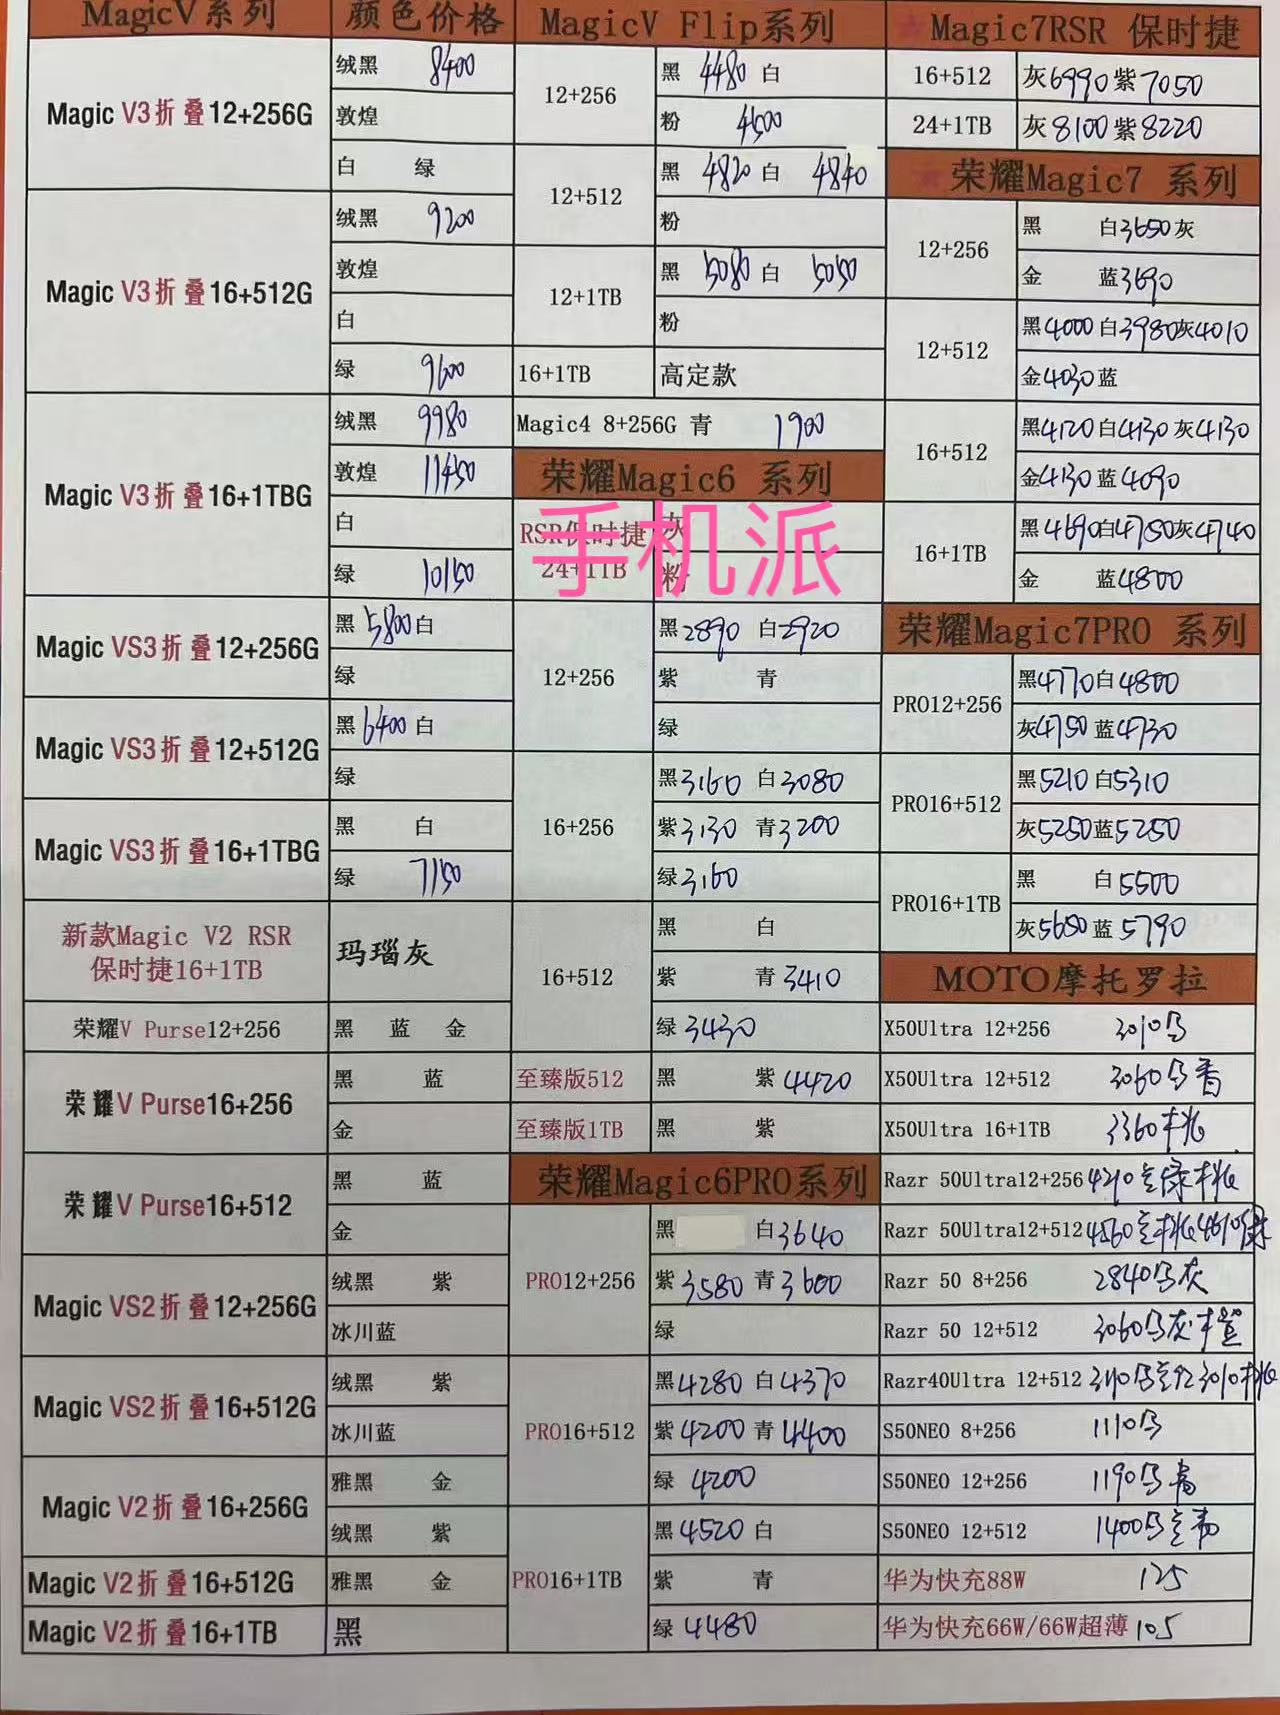 MagicV系列
颜色价格
Magic V3折叠12+256G
绒黑 8400
敦煌
白 绿
Magic V3折叠16+512G
绒黑 9200
敦煌
白
绿 9600
Magic V3折叠16+1TBG
绒黑 9980
敦煌 11450
白
绿 10150
Magic VS3折叠12+256G
黑5800白
绿
Magic VS3折叠12+512G
黑6400白
绿
Magic VS3折叠16+1TBG
黑 白
绿 7150
新款Magic V2 RSR
保时捷16+1TB
玛瑙灰
荣耀V Purse12+256
黑 蓝 金
荣耀V Purse16+256
黑 蓝
金
荣耀V Purse16+512
黑 蓝
金
Magic VS2折叠12+256G
绒黑 紫
冰川蓝
Magic VS2折叠16+512G
绒黑 紫
冰川蓝
Magic V2折叠16+256G
雅黑 金
绒黑 紫
Magic V2折叠16+512G
雅黑 金
Magic V2折叠16+1TB
黑
MagicV Flip系列
12+256
黑 4480 白
粉 4500
12+512
黑 4820 白 4840
粉
12+1TB
黑 5080 白 5050
粉
16+1TB
高定款
Magic4 8+256G 青 1900
荣耀Magic6 系列
RSR保时捷
24+1TB
灰
粉
手机派
12+256
黑2890 白2920
紫 青
绿
16+256
黑3160 白3080
紫3130 青3200
绿3160
16+512
黑 白
紫 青3410
绿3430
至臻版512
黑 紫4420
至臻版1TB
黑 紫
荣耀Magic6PRO系列
PRO12+256
黑 白3640
紫3580 青3600
绿
PRO16+512
黑4280 白4370
紫4200 青4400
绿 4200
PRO16+1TB
黑4520 白
紫 青
绿 4480
★ Magic7RSR 保时捷
16+512
灰6990紫7050
24+1TB
灰8100紫8220
★ 荣耀Magic7 系列
12+256
黑 白3650灰
金 蓝3690
12+512
黑4000白3980灰4010
金4030蓝
16+512
黑4120白4130灰4130
金4130蓝4090
16+1TB
黑4690白4750灰4740
金 蓝4800
荣耀Magic7PRO 系列
PRO12+256
黑4770白4800
灰4750蓝4730
PRO16+512
黑5210白5310
灰5250蓝5250
PRO16+1TB
黑 白5500
灰5650蓝5790
MOTO摩托罗拉
X50Ultra 12+256 3010
X50Ultra 12+512 3060
X50Ultra 16+1TB 3360桃
Razr 50Ultra12+256 4210 绿桃
Razr 50Ultra12+512 4560 桃4610绿
Razr 50 8+256 2840 灰
Razr 50 12+512 3060 灰橙
Razr40Ultra 12+512 3010桃
S50NEO 8+256 1110
S50NEO 12+256 1190
S50NEO 12+512 1400
华为快充88W 125
华为快充66W/66W超薄 105